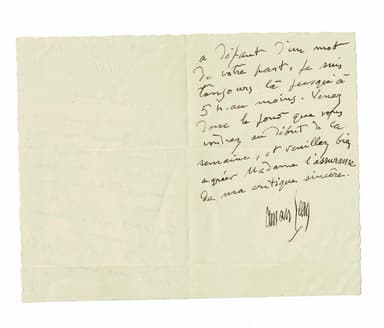 a défaut d'un mot
de votre part, je suis
toujours là jusqu'à
5 h. au moins. Venez
donc le jour que vous
voudrez au début de la
semaine, et veuillez bien
agréer Madame l'assurance
de ma critique sincère.